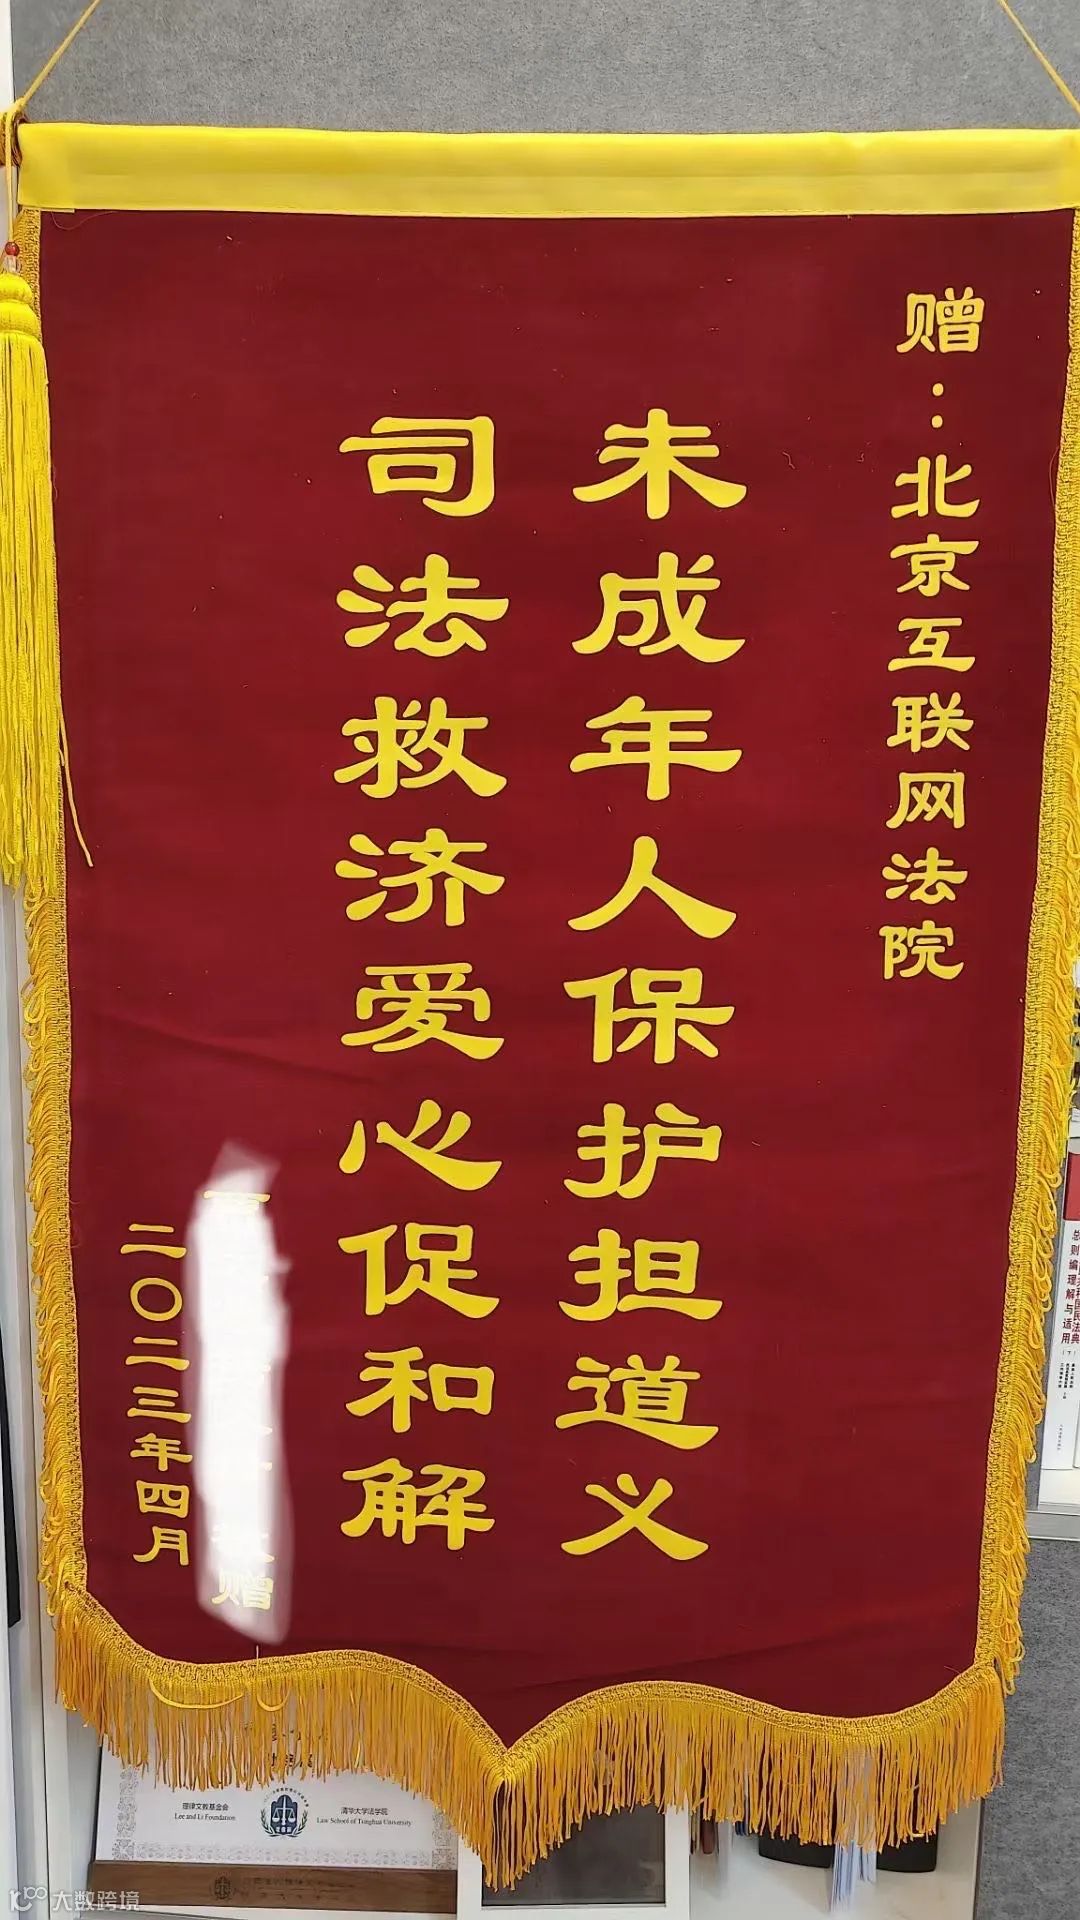 赠：北京互联网法院
未成年人保护担道义
司法救济爱心促和解
赠
二〇二三年四月
总则编理解与适用
理律文教基金会
Lee and Li Foundation
清华大学法学院
Law School of Tsinghua University
大数跨境